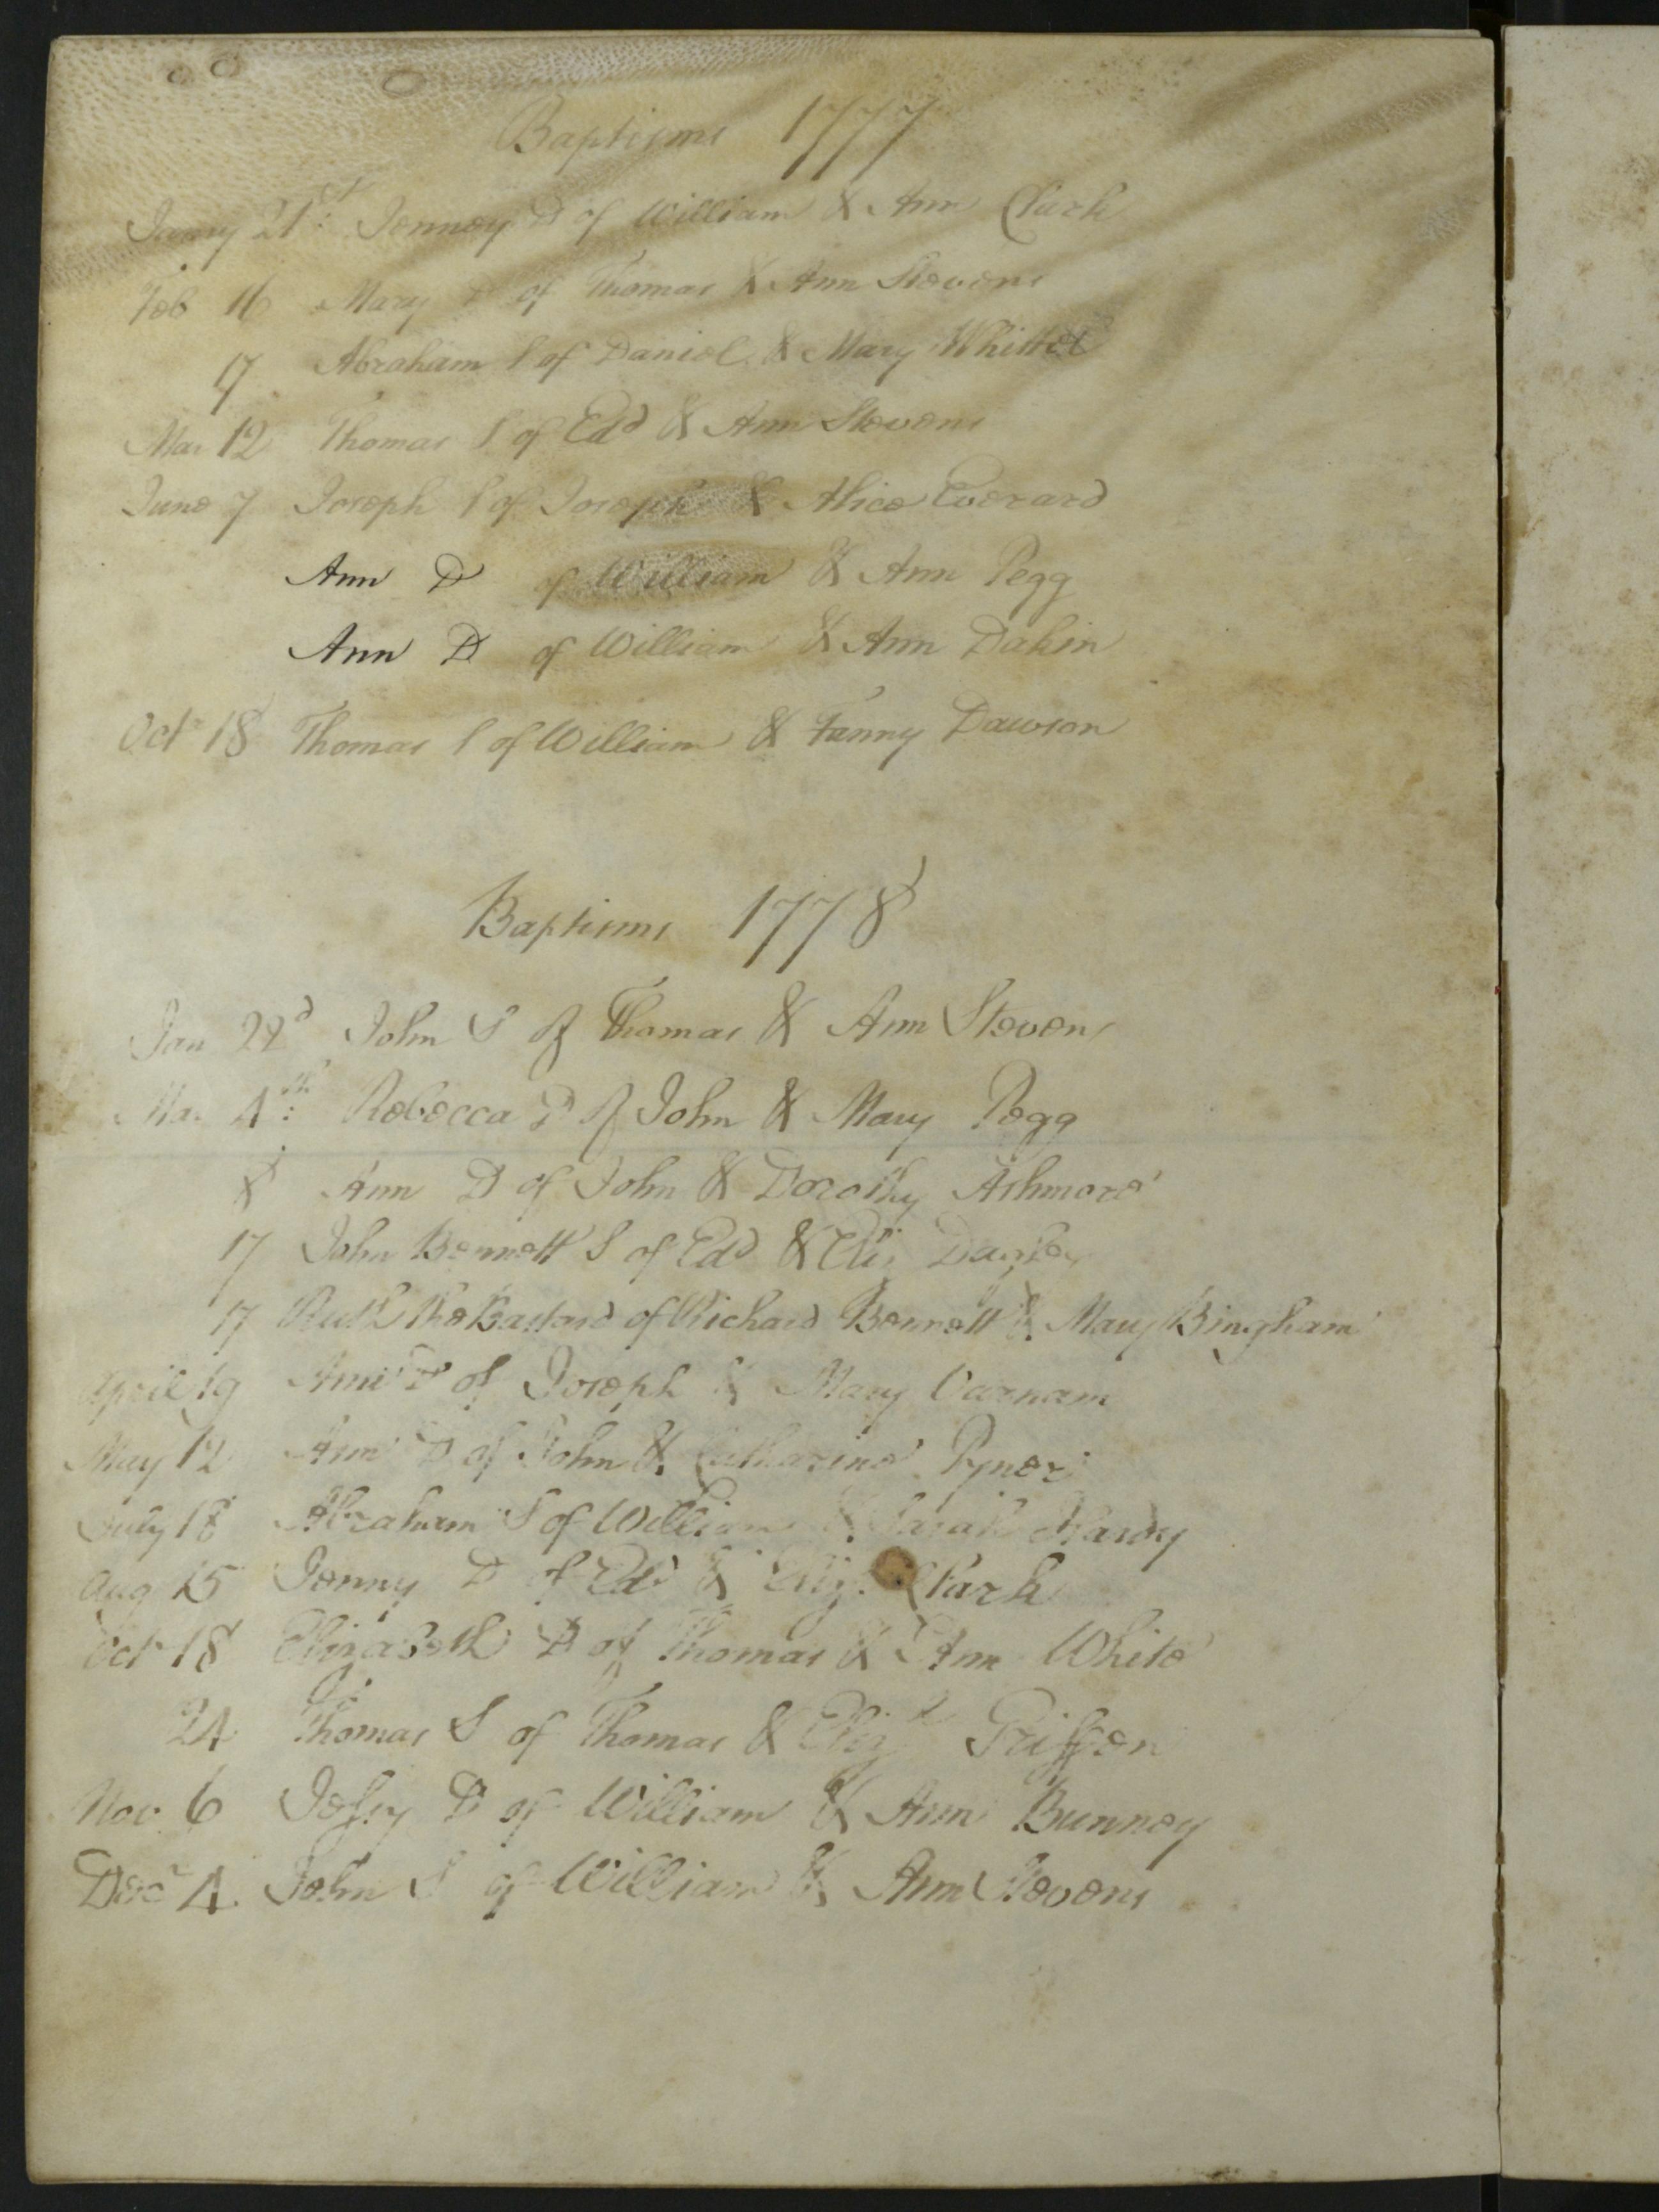 Baptisms 1777
Janry 21st Jenney D of William & Ann Clark
Feb 16 Mary D of Thomas & Ann Stevens
17 Abraham S of Daniel & Mary
Mar 12 Thomas S of Edd & Ann Stevens
June 7 Joseph S of Joseph & Alice Everard
Ann D of William & Ann Pegg
Ann D of William & Ann Dakin
Octr 18 Thomas S of William & Fanny Dawson
Baptisms 1778
Jan 22d John S of Thomas & Ann Stevens
Mar 4th: Rebecca D of John & Mary Pegg
8 Ann D of John & Dorothy Ashmore
17 John Bennett S of Edd & Eliz
17 Ruth the Bastard of Richard Bennett & Mary Bingham
April 19 Ann D of Joseph & Mary Varnam
May 12 Ann D of John & Catharine Pyner
July 18 Abraham S of William & Sarah Hardy
Aug 15 Jenny D of Edd & Eliz. Clark
Octr 18 Elizabeth D of Thomas & Ann White
24 Thomas S of Thomas & Elizh Griffen
Nov 6 D of William & Ann Bunney
Decr 4 John S of William & Ann Stevens